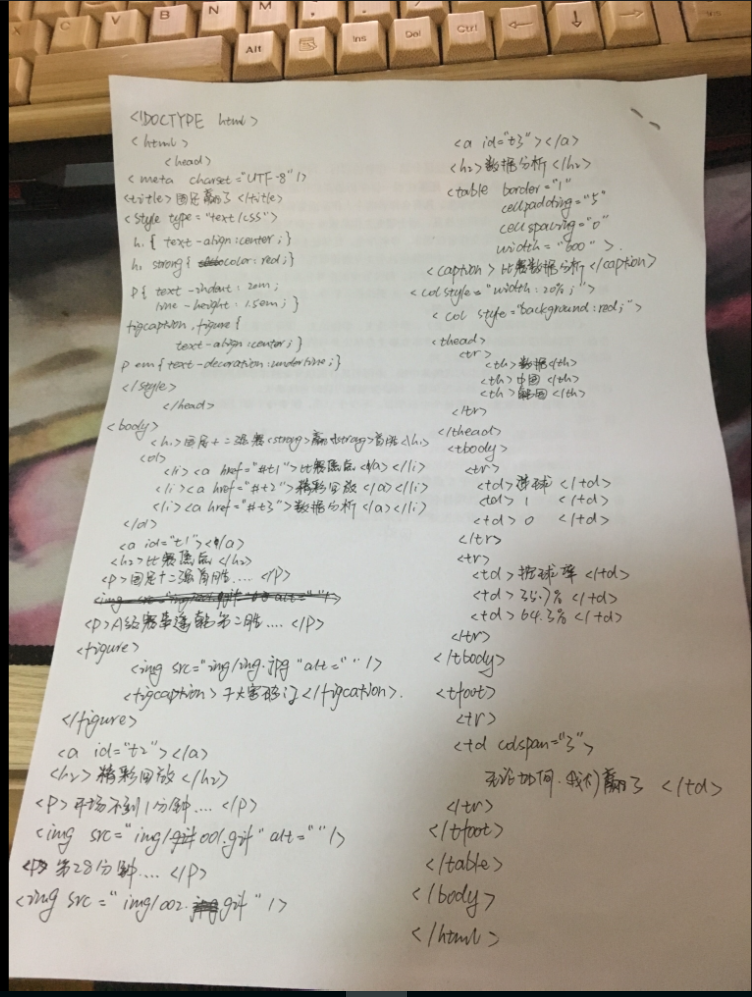 <!DOCTYPE html>
<html>
<head>
<meta charset="UTF-8"/>
<title>国足赢了</title>
<style type="text/css">
h1{ text-align:center;}
h1 strong{ color:red;}
p{ text-indent:2em;
line-height:1.5em;}
figcaption,figure{
text-align:center;}
p em{text-decoration:underline;}
</style>
</head>
<body>
<h1>国足十二强赛<strong>赢</strong>首胜</h1>
<ol>
<li><a href="#t1">比赛焦点</a></li>
<li><a href="#t2">精彩回放</a></li>
<li><a href="#t3">数据分析</a></li>
</ol>
<a id="t1"></a>
<h2>比赛焦点</h2>
<p>国足十二强首胜....</p>
<p>A组赛事逢韩第二胜....</p>
<figure>
<img src="img/img.jpg" alt="" />
<figcaption>于大宝破门</figcation>.
</figure>
<a id="t2"></a>
<h2>精彩回放</h2>
<p>开场不到1分钟....</p>
<img src="img/001.gif" alt=""/>
<p>第28分钟....</p>
<img src="img/002.gif"/>
<a id="t3"></a>
<h2>数据分析</h2>
<table border="1"
cellpadding="5"
cellspacing="0"
width="600">.
<caption>比赛数据分析</caption>
<col style="width:20%;">
<col style="background:red;">
<thead>
<tr>
<th>数据</th>
<th>中国</th>
<th>韩国</th>
</tr>
</thead>
<tbody>
<tr>
<td>进球</td>
<td>1 </td>
<td>0 </td>
</tr>
<tr>
<td>控球率</td>
<td>35.7%</td>
<td>64.3%</td>
</tr>
</tbody>
<tfoot>
<tr>
<td colspan="3">
无论如何,我们赢了</td>
</tr>
</tfoot>
</table>
</body>
</html>
Alt
Ins
Del
Ctrl
X
C
V
B
N
M